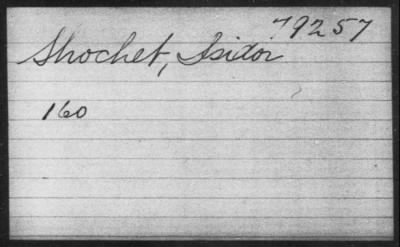 79257
Shochet, Isidor
160